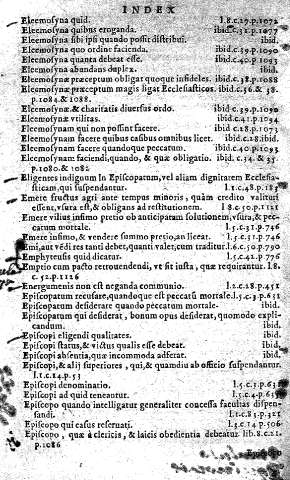 INDEX
Eleemosyna quid. l.8.c.29.p.1072
Eleemosyna quibus eroganda. ibid.c.32.p.1077
Eleemosyna sibi ipsi quando possit distribui. ibid.
Eleemosyna quo ordine facienda. ibid.c.39.p.1090
Eleemosyna quanta debeat esse. ibid.c.40.p.1093
Eleemosyna abundans duplex. ibid.
Eleemosynæ præceptum obligat quoque infideles. ibid.c.38.p.1088
Eleemosynæ præceptum magis ligat Ecclesiasticos. ibid.c.36 & 38.
p.1084 & 1088.
Eleemosynæ & charitatis diuersus ordo. ibid.c.39.p.1090
Eleemosynæ vtilitas. ibid.c.41.p.1094
Eleemosynam qui non possint facere. ibid.c.18.p.1073
Eleemosynam facere quibus casibus omnibus licet. ibid.c.18.ibid.
Eleemosynam facere quandoque peccatum. ibid.c.40.p.1093
Eleemosynam faciendi, quando, & quæ obligatio. ibid. c.34. & 35.
p.1080. & 1082
Eligentes indignum In Episcopatum, vel aliam dignitatem Ecclesia-
sticam, qui suspendantur. l.1.c.48.p.183
Emere fructus agri ante tempus minoris, quàm credito valituri
essent, vsura est, & obligans ad restitutionem. l 8.c.9.p.1121
Emere vilius infimo pretio ob anticipatam solutionem, vsura, & pec-
catum mortale. l.5.c.31.p.746
Emere infimo, & vendere summo pretio, an liceat. l.5.c.31.p.746
Emi, aut vēdi res tanti debet, quanti valet, cum traditur. l.6.c.30.p.790
Emphyteusis quid dicatur. l.5.c.42.p.776
Emptio cum pacto retrouendendi, vt sit iusta, quæ requirantur. l.8.
c.32.p.1126
Energumenis non est neganda communio. l.2.c.18.p.452
Episcopatum recusare, quandoque est peccatū mortale. l.5.c.3.p.631
Episcopatum desiderare quando peccatum mortale. ibid.
Episcopatum qui desiderat, bonum opus desiderat, quomodo expli-
candum. ibid.
Episcopi eligendi qualitates. ibid.
Episcopi status, & victus qualis esse debeat. ibid.
Episcopi absentia, quæ incommoda adferat. ibid.
Episcopi, & alij superiores, qui, & quamdiu ab officio suspendantur.
l.1.c.14.p.53
Episcopi denominatio. l.5.c.3.p.63
Episcopi ad quid teneantur. l.5.c.4.p.63
Episcopo quando intelligatur generaliter concessa facultas dispen-
sandi. l.1.c.83.p.321
Episcopo qui casus reseruati. l.3.c.14.p.506
Episcopo, quæ à clericis, & laicis obedientia debeatur. lib.8.c.21.
p.1086